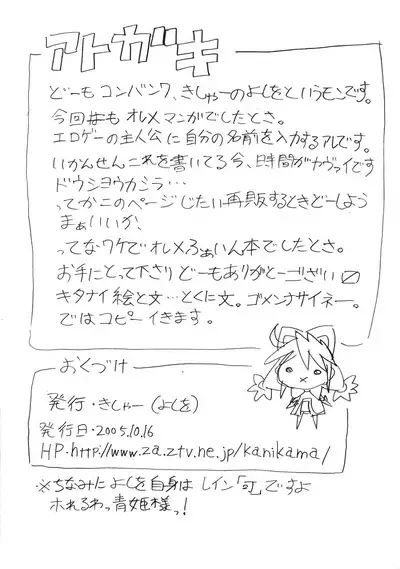 アトガキ
どーもコンバンワ、きしゃーのよしをというモンです。
今回もオレメマンガでしたとさ。
エロゲーの主人公に自分の名前を入力するアレです。
いかんせんこれを書いてる今、時間がヤヴァイです
ドウシヨウカシラ…
ってかこのページじたい再販するときどーしよう
まぁいいか。
ってなワケでオレメふぁいん本でしたとさ。
お手にとって下さりどーもありがとーござい〼
キタナイ絵と文…とくに文。ゴメンナサイネー。
ではコピーイきます。
おくづけ
発行・きしゃー(よしを)
発行日・2005.10.16
HP・http://www.za.ztv.ne.jp/kanikama/
※ちなみによしを自身はレイン「可」ですよ
ホれるわっ青姫様っ!